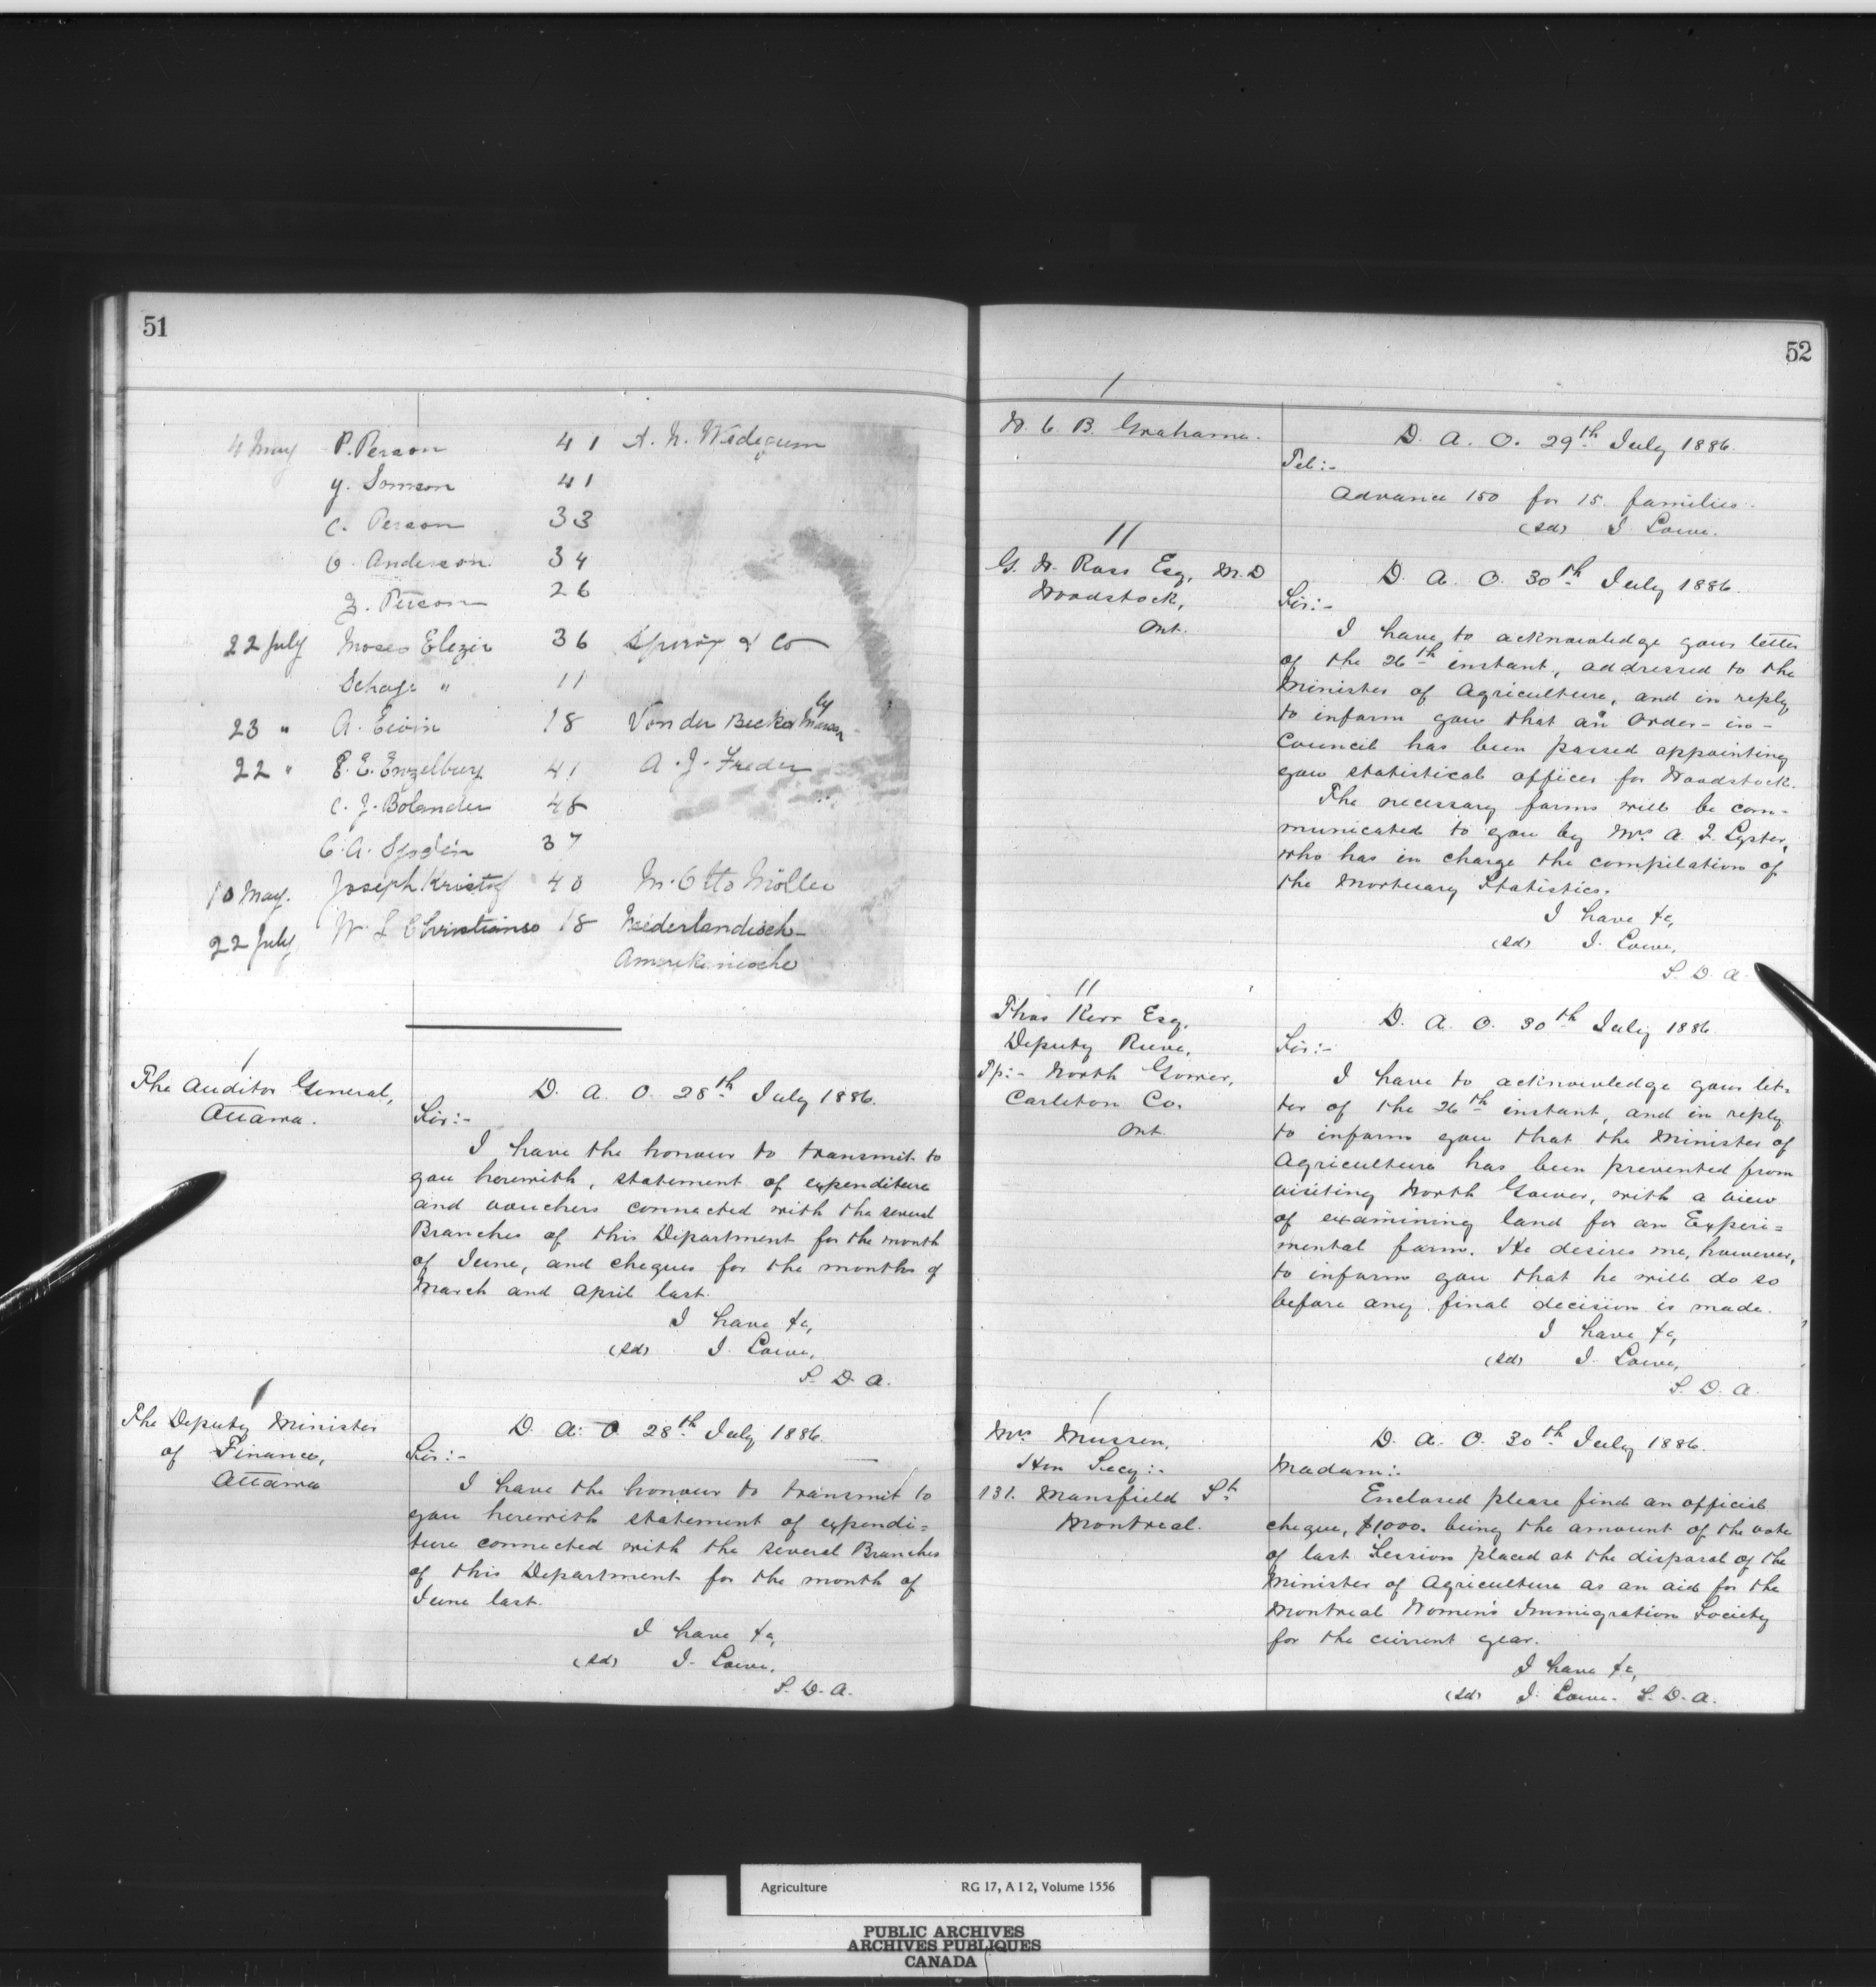 51
4 May P. Person 41 A. N. Widegum
y. Somson 41
C. Person 33
O. Anderson 34
Z. Person 26
22 July Moses Elezir 36 & Co
" 11
23 " A. 18 Von der Becke
22 " E. E. Engelburg 41 A. J. Freder
C. J. Bolander 48
C. A. 37
10 May. Joseph Kristof 40 M. Otto Möller
22 July W. L Christianse 18 Niederlandisch-
Amerikinische
/
The Auditor General,
Ottawa.
D. A. O. 28th July 1886.
Sir:-
I have the honour to transmit to
you herewith, statement of expenditure
and vouchers connected with the several
Branches of this Department for the month
of June, and cheques for the months of
March and April last.
I have &c,
(sd) J. Lowe,
S. D. A.
/
The Deputy Minister
of Finance,
Ottawa
D. A. O. 28th July 1886.
Sir:-
I have the honour to transmit to
you herewith statement of expendi=
ture connected with the several Branches
of this Department for the month of
June last.
I have &c,
(sd) J. Lowe,
S. D. A.
52
/
W. C. B. Grahame.
D. A. O. 29th July 1886.
Tel:-
Advance 150 for 15 families.
(sd) J. Lowe.
//
G. W. Ross Esq, M.D
Woodstock,
Ont.
D. A. O. 30th July 1886.
Sir:-
I have to acknowledge your letter
of the 26th instant, addressed to the
Minister of Agriculture, and in reply
to inform you that an Order-in-
Council has been passed appointing
you statistical officer for Woodstock.
The necessary forms will be com-
municated to you by Mr A. J. Lyster,
who has in charge the compilation of
the Mortuary Statistics.
I have &c,
(sd) J. Lowe,
S. D. A.
//
Thos Kerr Esq,
Deputy Reeve,
Tp:- North Gower,
Carleton Co.
Ont.
D. A. O. 30th July 1886.
Sir:-
I have to acknowledge your let-
ter of the 26th instant, and in reply
to inform you that the Minister of
Agriculture has been prevented from
visiting North Gower, with a view
of examining land for an Experi=
mental farm. He desires me, however,
to inform you that he will do so
before any final decision is made.
I have &c,
(sd) J. Lowe,
S. D. A.
/
Mrs Mussen,
Hon Secy:-
131. Mansfield St
Montreal.
D. A. O. 30th July 1886.
Madam:-
Enclosed please find an official
cheque, $1000. being the amount of the vote
of last Session placed at the disposal of the
Minister of Agriculture as an aid for the
Montreal Women's Immigration Society
for the current year.
I have &c,
(sd) J. Lowe. S. D. A.
Agriculture RG 17, A I 2, Volume 1556
PUBLIC ARCHIVES
ARCHIVES PUBLIQUES
CANADA